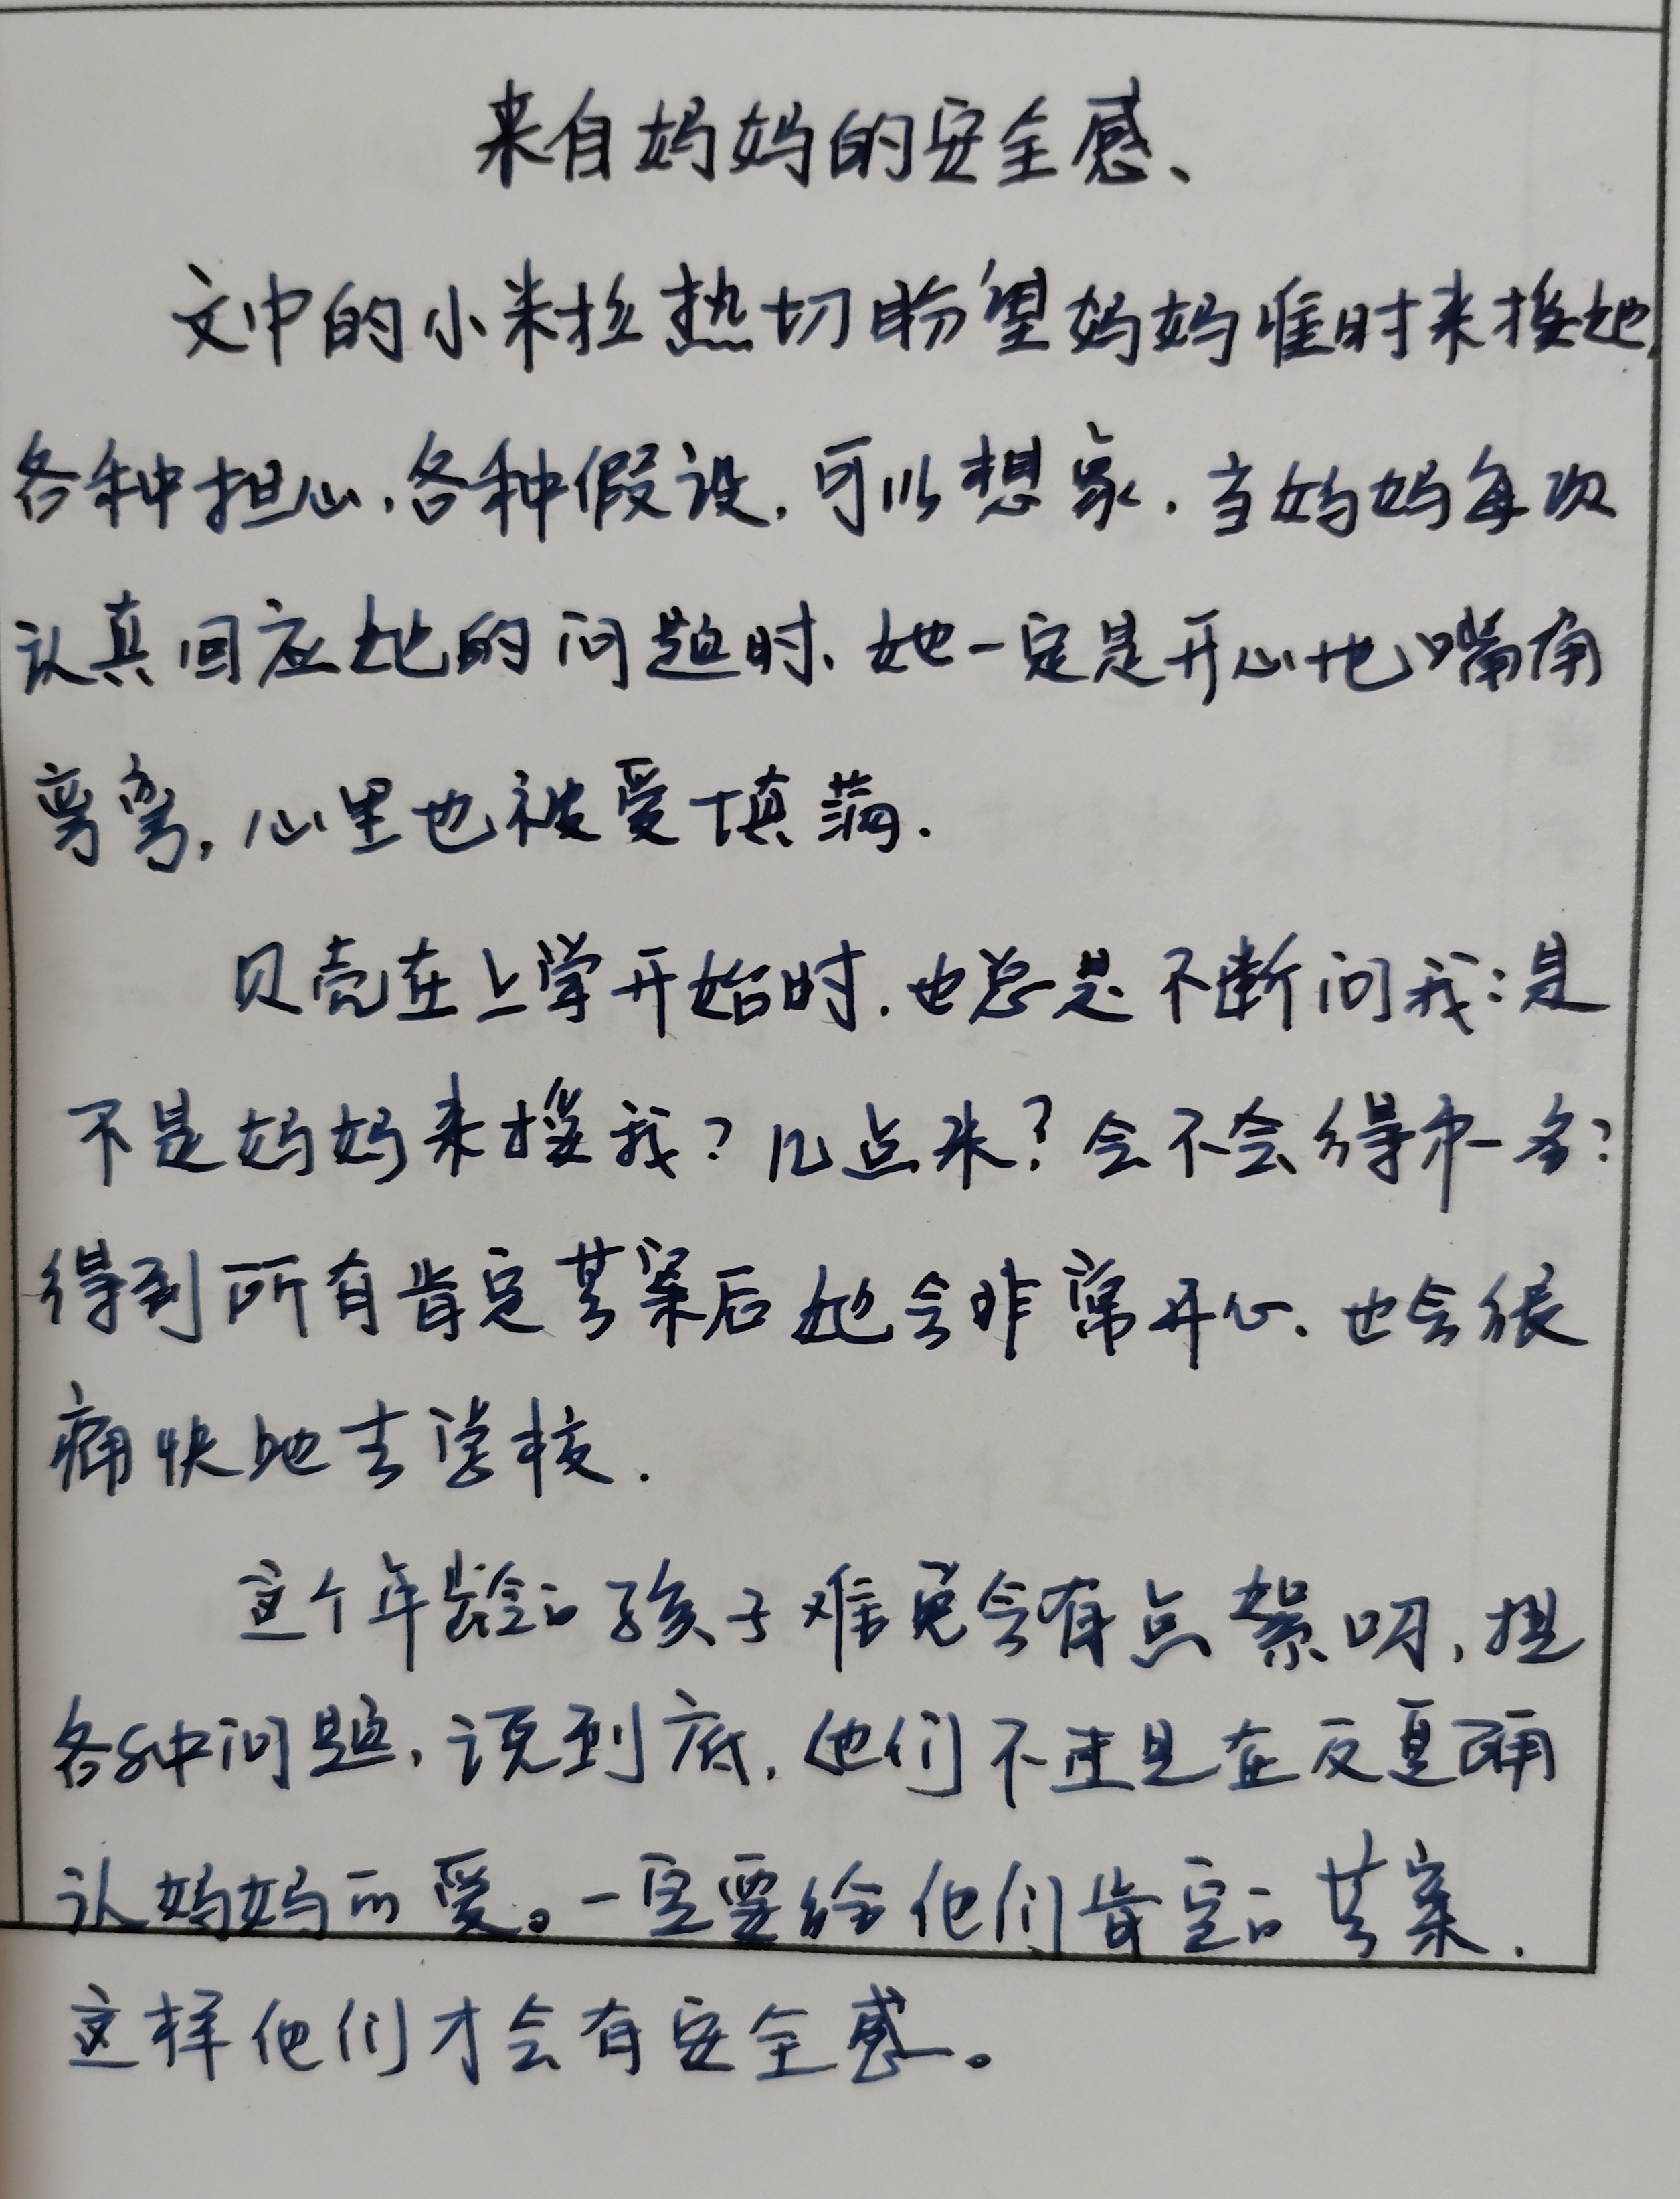 来自妈妈的安全感、
文中的小米拉热切盼望妈妈准时来接她,
各种担心,各种假设,可以想象,当妈妈每次
认真回应她的问题时,她一定是开心地嘴角
弯弯,心里也被爱填满.
贝壳在上学开始时,也总是不断问我:是
不是妈妈来接我?几点来?会不会得第一名?
得到所有肯定答案后她会非常开心、也会很
痛快地去学校.
这个年龄的孩子难免会有点絮叨,提
各种问题,说到底,他们不过是在反复确
认妈妈的爱。一定要给他们肯定的答案.
这样他们才会有安全感。